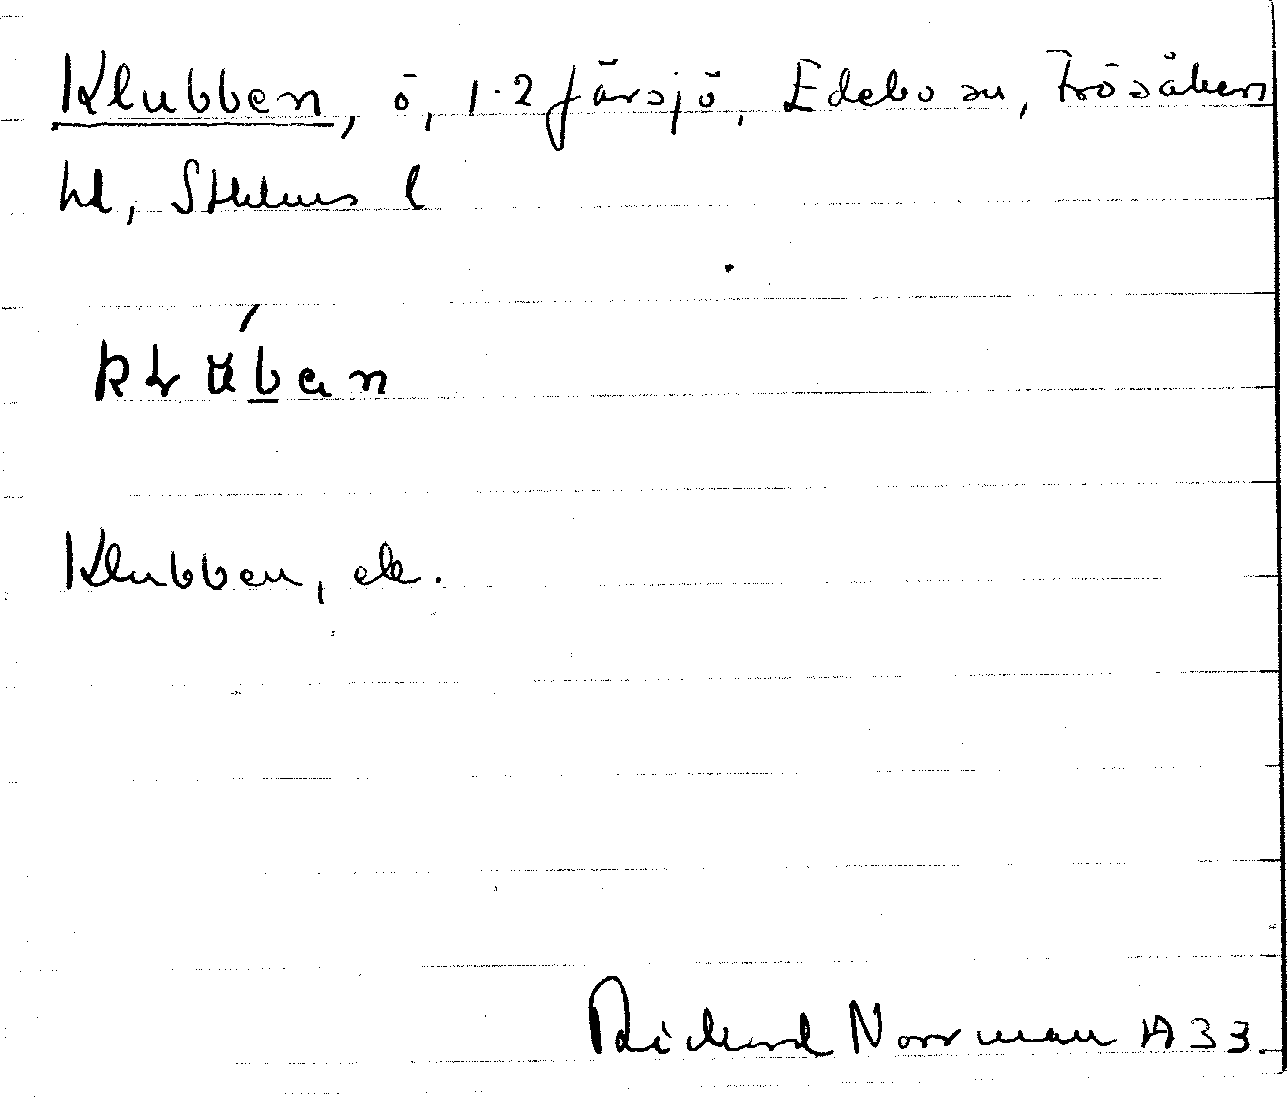 Klubben, ö, 1.2 Järsjö, Edebo sn, Frösåkers
hd, Sthlms l
Klubben, ek.
Richard Norrman 1933.